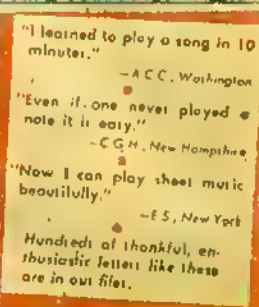 "I learned to play a song in 10
minutes."
—A C C, Washington
"Even if one never played a
note it is easy."
—C G H, New Hampshire
"Now I can play sheet music
beautifully."
—E S, New York
Hundreds of thankful, en-
thusiastic letters like these
are in our files.